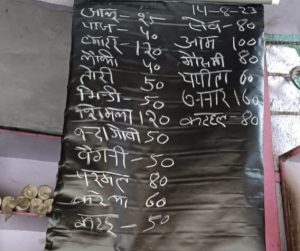 आलू - 25
प्याज - 40
टमाटर - 120
लौकी 40
तोरी 50
भिन्डी - 50
शिमला 120
50
बैगनी - 50
परमल 80
करेला 60
कद्दू - 50
14-8-23
सेव - 80
आम 100
मोसमी 80
पपीता 60
अनार 160
कटहल - 80